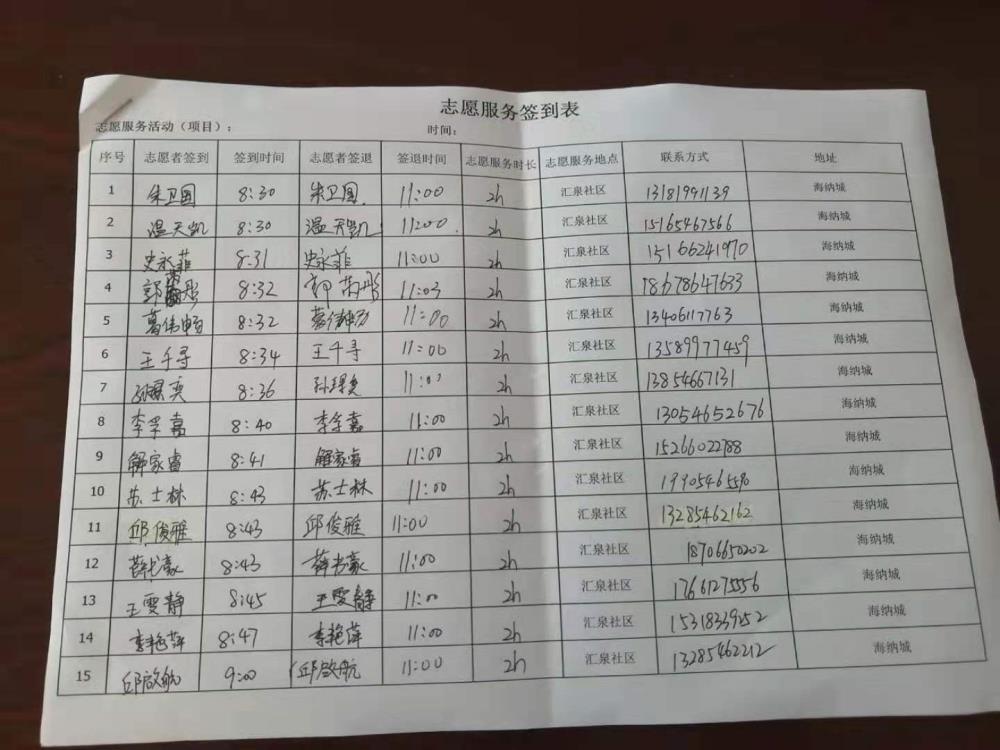 志愿服务签到表
志愿服务活动（项目）： 时间：
序号 志愿者签到 签到时间 志愿者签退 签退时间 志愿服务时长 志愿服务地点 联系方式 地址
1 朱卫国 8:30 朱卫国 11:00 2h 汇泉社区 13181991139 海纳城
2 温天凯 8:30 温天凯 11:00 2h 汇泉社区 15165467566 海纳城
3 史永菲 8:31 史永菲 11:00 2h 汇泉社区 15166241970 海纳城
4 8:32 11:03 2h 汇泉社区 18678647633 海纳城
5 葛伟畅 8:32 11:00 2h 汇泉社区 13406117763 海纳城
6 王千寻 8:34 王千寻 11:00 2h 汇泉社区 13589977459 海纳城
7 8:36 11:00 2h 汇泉社区 13854667131 海纳城
8 8:40 11:00 2h 汇泉社区 13054652676 海纳城
9 解家睿 8:41 解家睿 11:00 2h 汇泉社区 15266022788 海纳城
10 苏士林 8:43 苏士林 11:00 2h 汇泉社区 海纳城
11 邱俊雅 8:43 邱俊雅 11:00 2h 汇泉社区 13285462162 海纳城
12 薛书豪 8:43 薛书豪 11:00 2h 汇泉社区 18706650202 海纳城
13 王雯静 8:45 王雯静 11:00 2h 汇泉社区 17661275556 海纳城
14 李艳萍 8:47 李艳萍 11:00 2h 汇泉社区 15318339252 海纳城
15 邱啟航 9:00 邱啟航 11:00 2h 汇泉社区 13285462212 海纳城